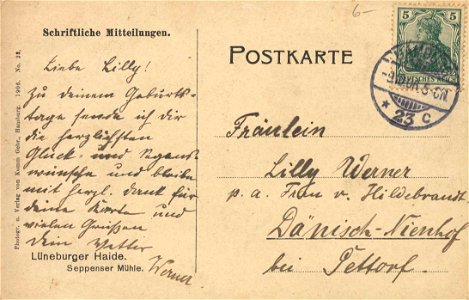 6-
Schriftliche Mitteilungen.
POSTKARTE
5 5
23 c
Liebe Lilly!
Zu deinem Geburts-
tage sende ich dir
die herzlichsten
Glück- und Segens
wünsche und bleibe
mit herzl. Dank für
deine Karte und
vielen Grüßen
Dein Vetter
Werner
Lüneburger Haide.
Seppenser Mühle.
Photogr. u. Verlag von Komm Gebr., Hamburg. 1906. No. 28.
Fräulein
Lilly Werner
p. a. Frau v. Hildebrandt
Dänisch-Nienhof
bei Tettorf.